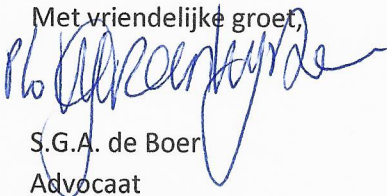 Met vriendelijke groet,
S.G.A. de Boer
Advocaat